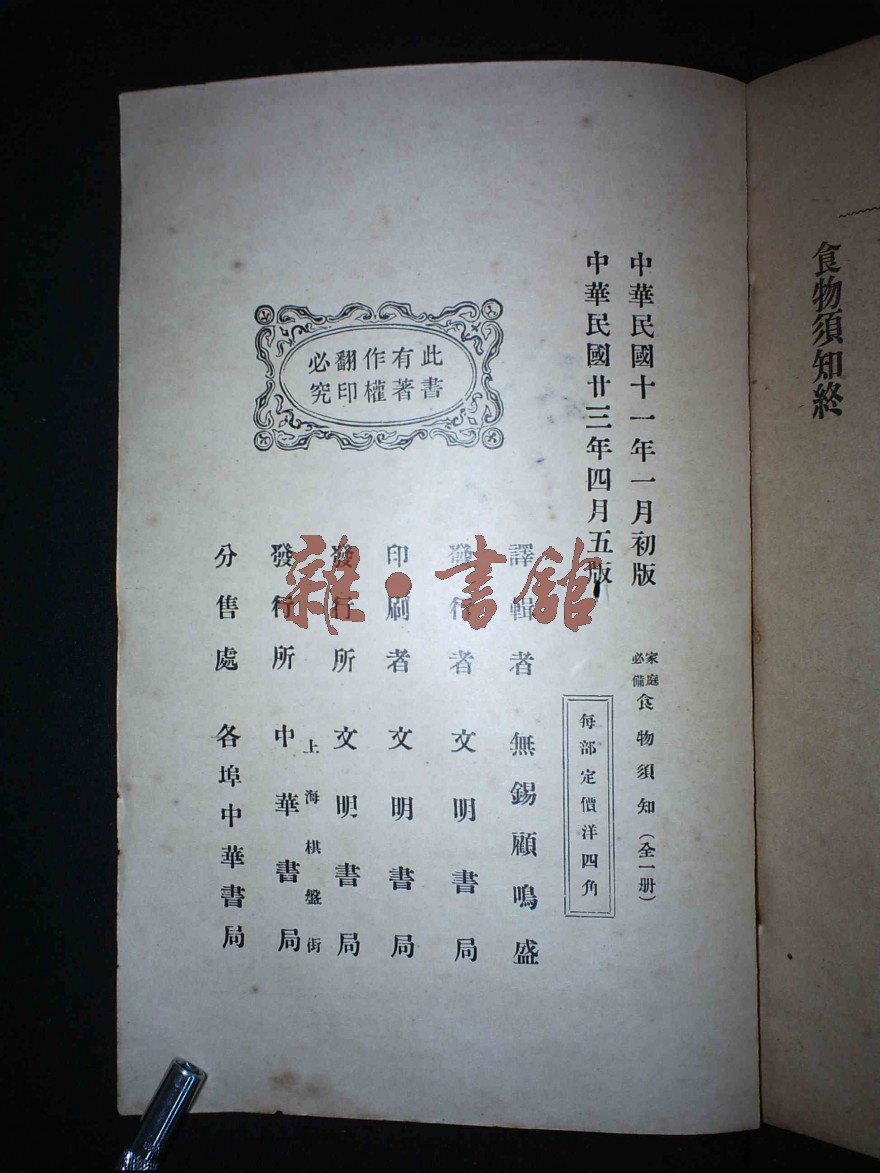 食物須知終
中華民國十一年一月初版
中華民國廿三年四月五版
家庭必備 食物須知（全一册）
每部定價洋四角
此書有著作權翻印必究
譯輯者 無錫顧鳴盛
發行者 文明書局
印刷者 文明書局
發行所 文明書局
上海棋盤街
發行所 中華書局
分售處 各埠中華書局
雜·書舘